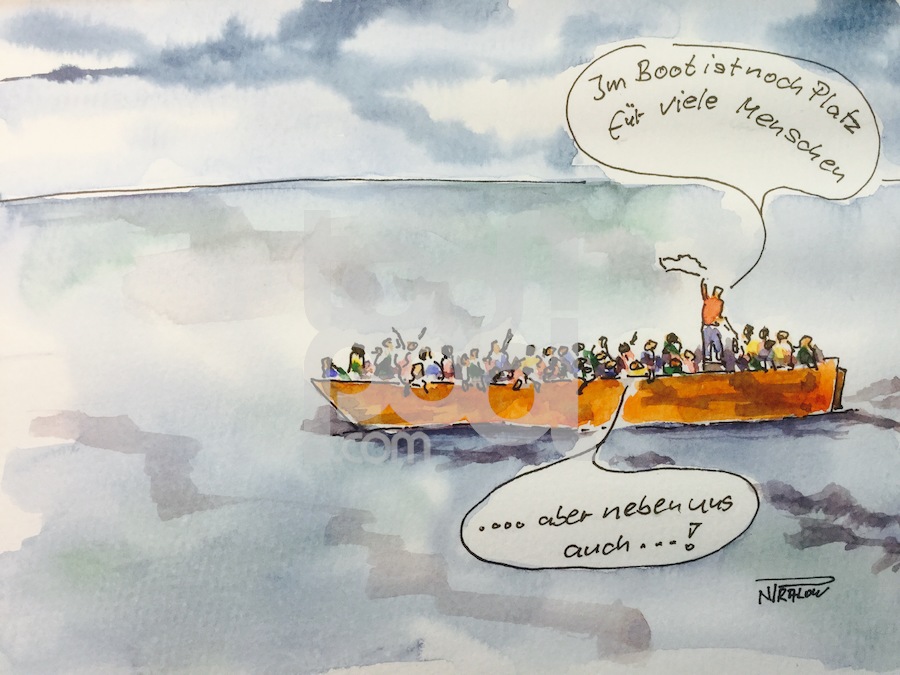 Im Boot ist noch Platz
für viele Menschen
.... aber neben uns
auch ...!
.com